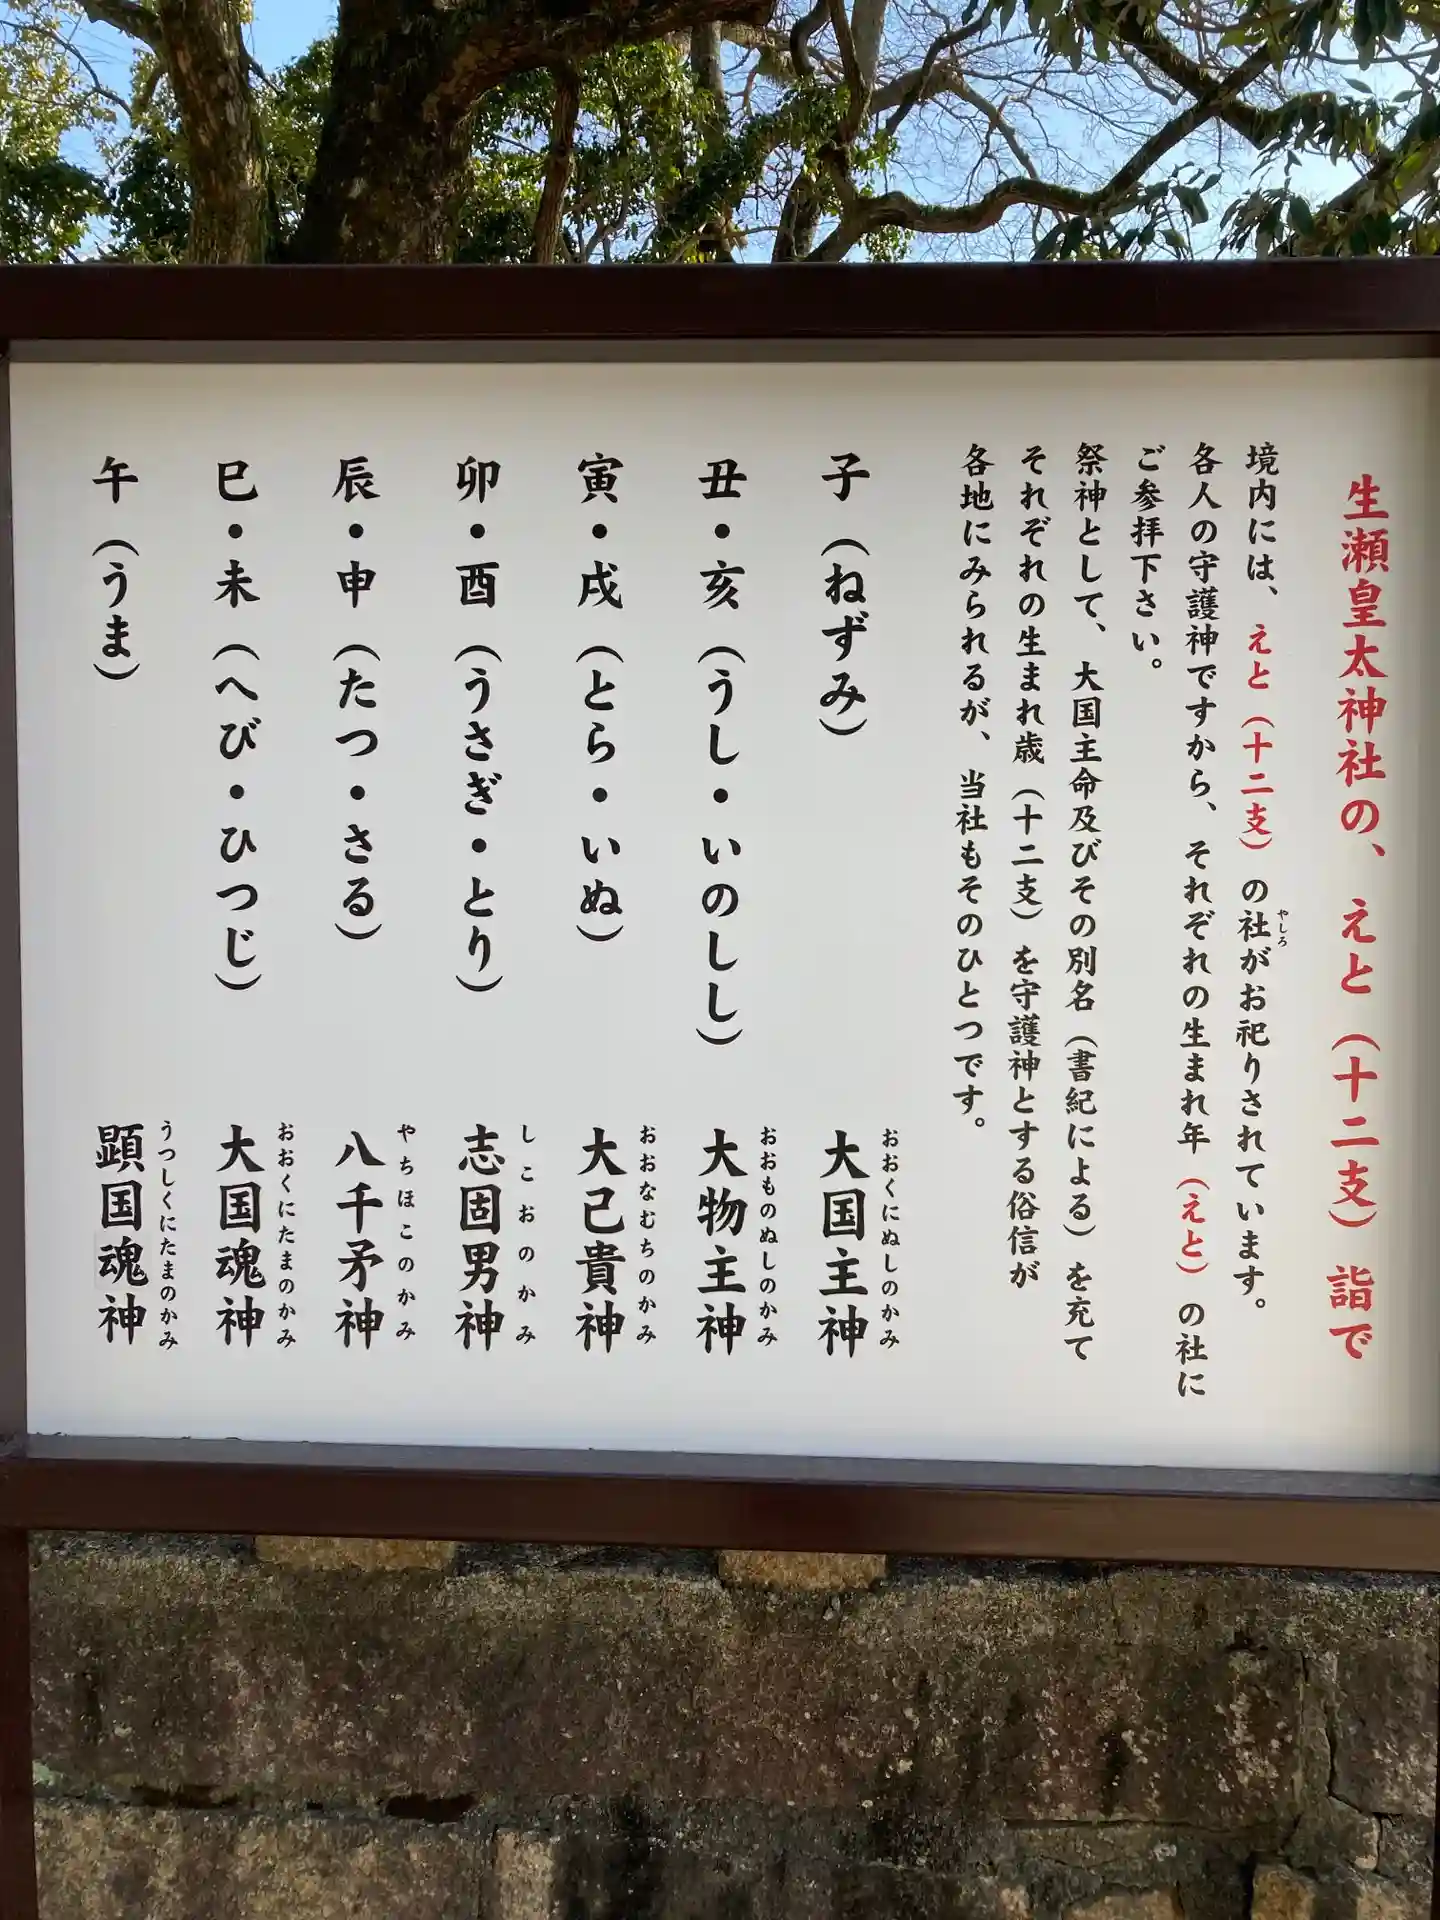 生瀬皇太神社の、えと（十二支）詣で
境内には、えと（十二支）の社がお祀りされています。
やしろ
各人の守護神ですから、それぞれの生まれ年（えと）の社に
ご参拝下さい。
祭神として、大国主命及びその別名（書紀による）を充て
それぞれの生まれ歳（十二支）を守護神とする俗信が
各地にみられるが、当社もそのひとつです。
子（ねずみ）　大国主神
おおくにぬしのかみ
丑・亥（うし・いのしし）　大物主神
おおものぬしのかみ
寅・戌（とら・いぬ）　大己貴神
おおなむちのかみ
卯・酉（うさぎ・とり）　志固男神
しこおのかみ
辰・申（たつ・さる）　八千矛神
やちほこのかみ
巳・未（へび・ひつじ）　大国魂神
おおくにたまのかみ
午（うま）　顕国魂神
うつしくにたまのかみ